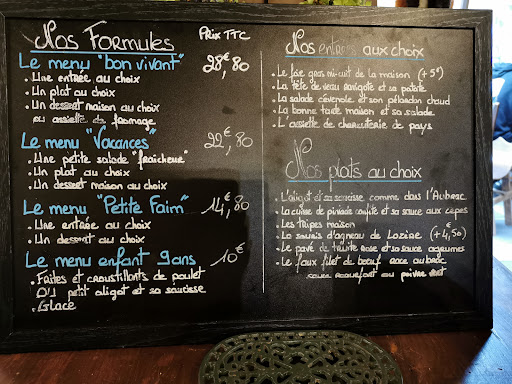 Nos Formules Prix TTC
Le menu "bon vivant" 28€,80
. Une entrée au choix
. Un plat au choix
. Un dessert maison au choix
ou assiette de fromage
Le menu "Vacances" 22€,80
. Une petite salade "fraîcheur"
. Un plat au choix
. Un dessert maison au choix
Le menu "Petite Faim" 14€,80
. Une entrée au choix
. Un dessert au choix
Le menu enfant 9ans 10€
. Frites et croustillants de poulet
OU petit aligot et sa saucisse
. Glace
Nos entrées aux choix
. Le foie gras mi-cuit de la maison (+5€)
. La tête de veau ravigote et sa patate
. La salade cévenole et son pélardon chaud
. La bonne tarte maison et sa salade
. L'assiette de charcuterie de pays
Nos plats au choix
. L'aligot et sa saucisse comme dans l'Aubrac
. La cuisse de pintade confite et sa sauce aux cèpes
. Les tripes maison
. La souris d'agneau de Lozère (+4,50)
. Le pavé de truite rose et sa sauce agrumes
. Le faux filet de boeuf race aubrac
sauce roquefort ou poivre vert